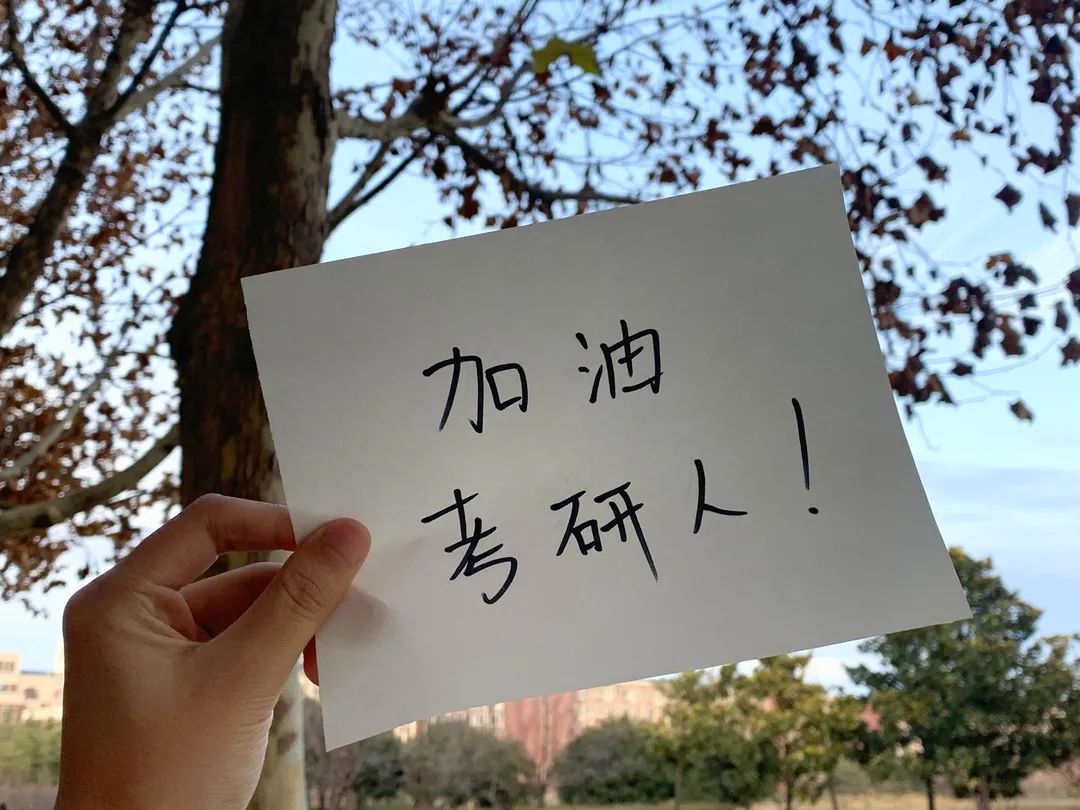 加油
考研人!